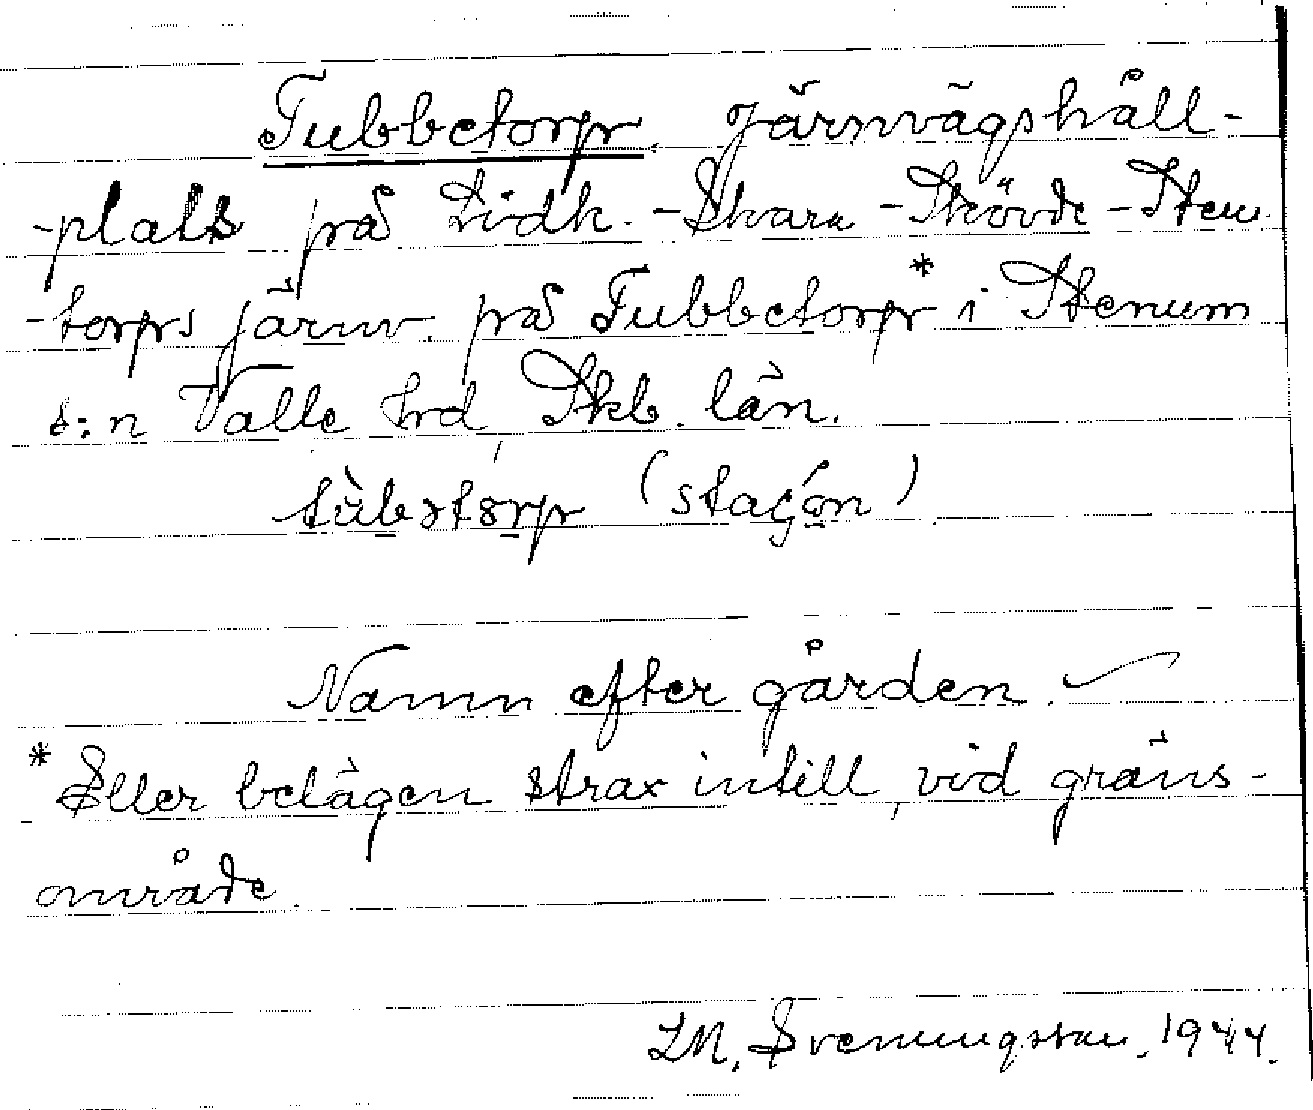 Tubbetorp järnvägshåll-
-plats på Lidk.-Skara-Skövde-Sten
-torps järnv. på Tubbetorp* i Stenum
s:n Valle hrd, Skb. län.
(
)
Namn efter gården.
* Eller belägen strax intill, vid gräns-
område.
LM. Svenungsson. 1944.